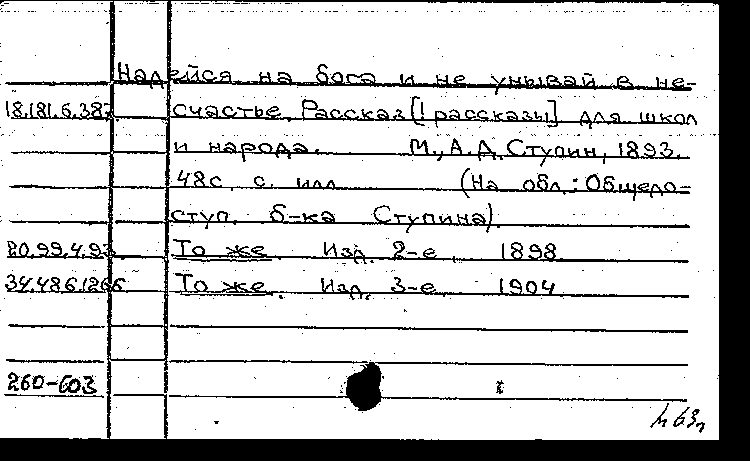 Надейся на бога и не унывай в не-
18.181.6.387 счастье. Рассказ [! рассказы] для школ
и народа. М., А. Д. Ступин, 1893.
48 с. с илл. (На обл.: Общедо-
ступ. б-ка Ступина).
20.99.4.93 То же. Изд. 2-е. 1898
34.48.6.1266 То же. Изд. 3-е. 1904
260-603